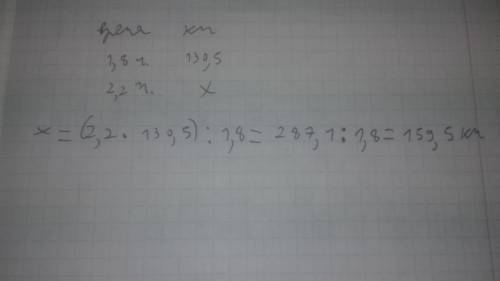 время км
1,8 ч. 130,5
2,2 ч. x
x = (2,2 · 130,5) : 1,8 = 287,1 : 1,8 = 159,5 км